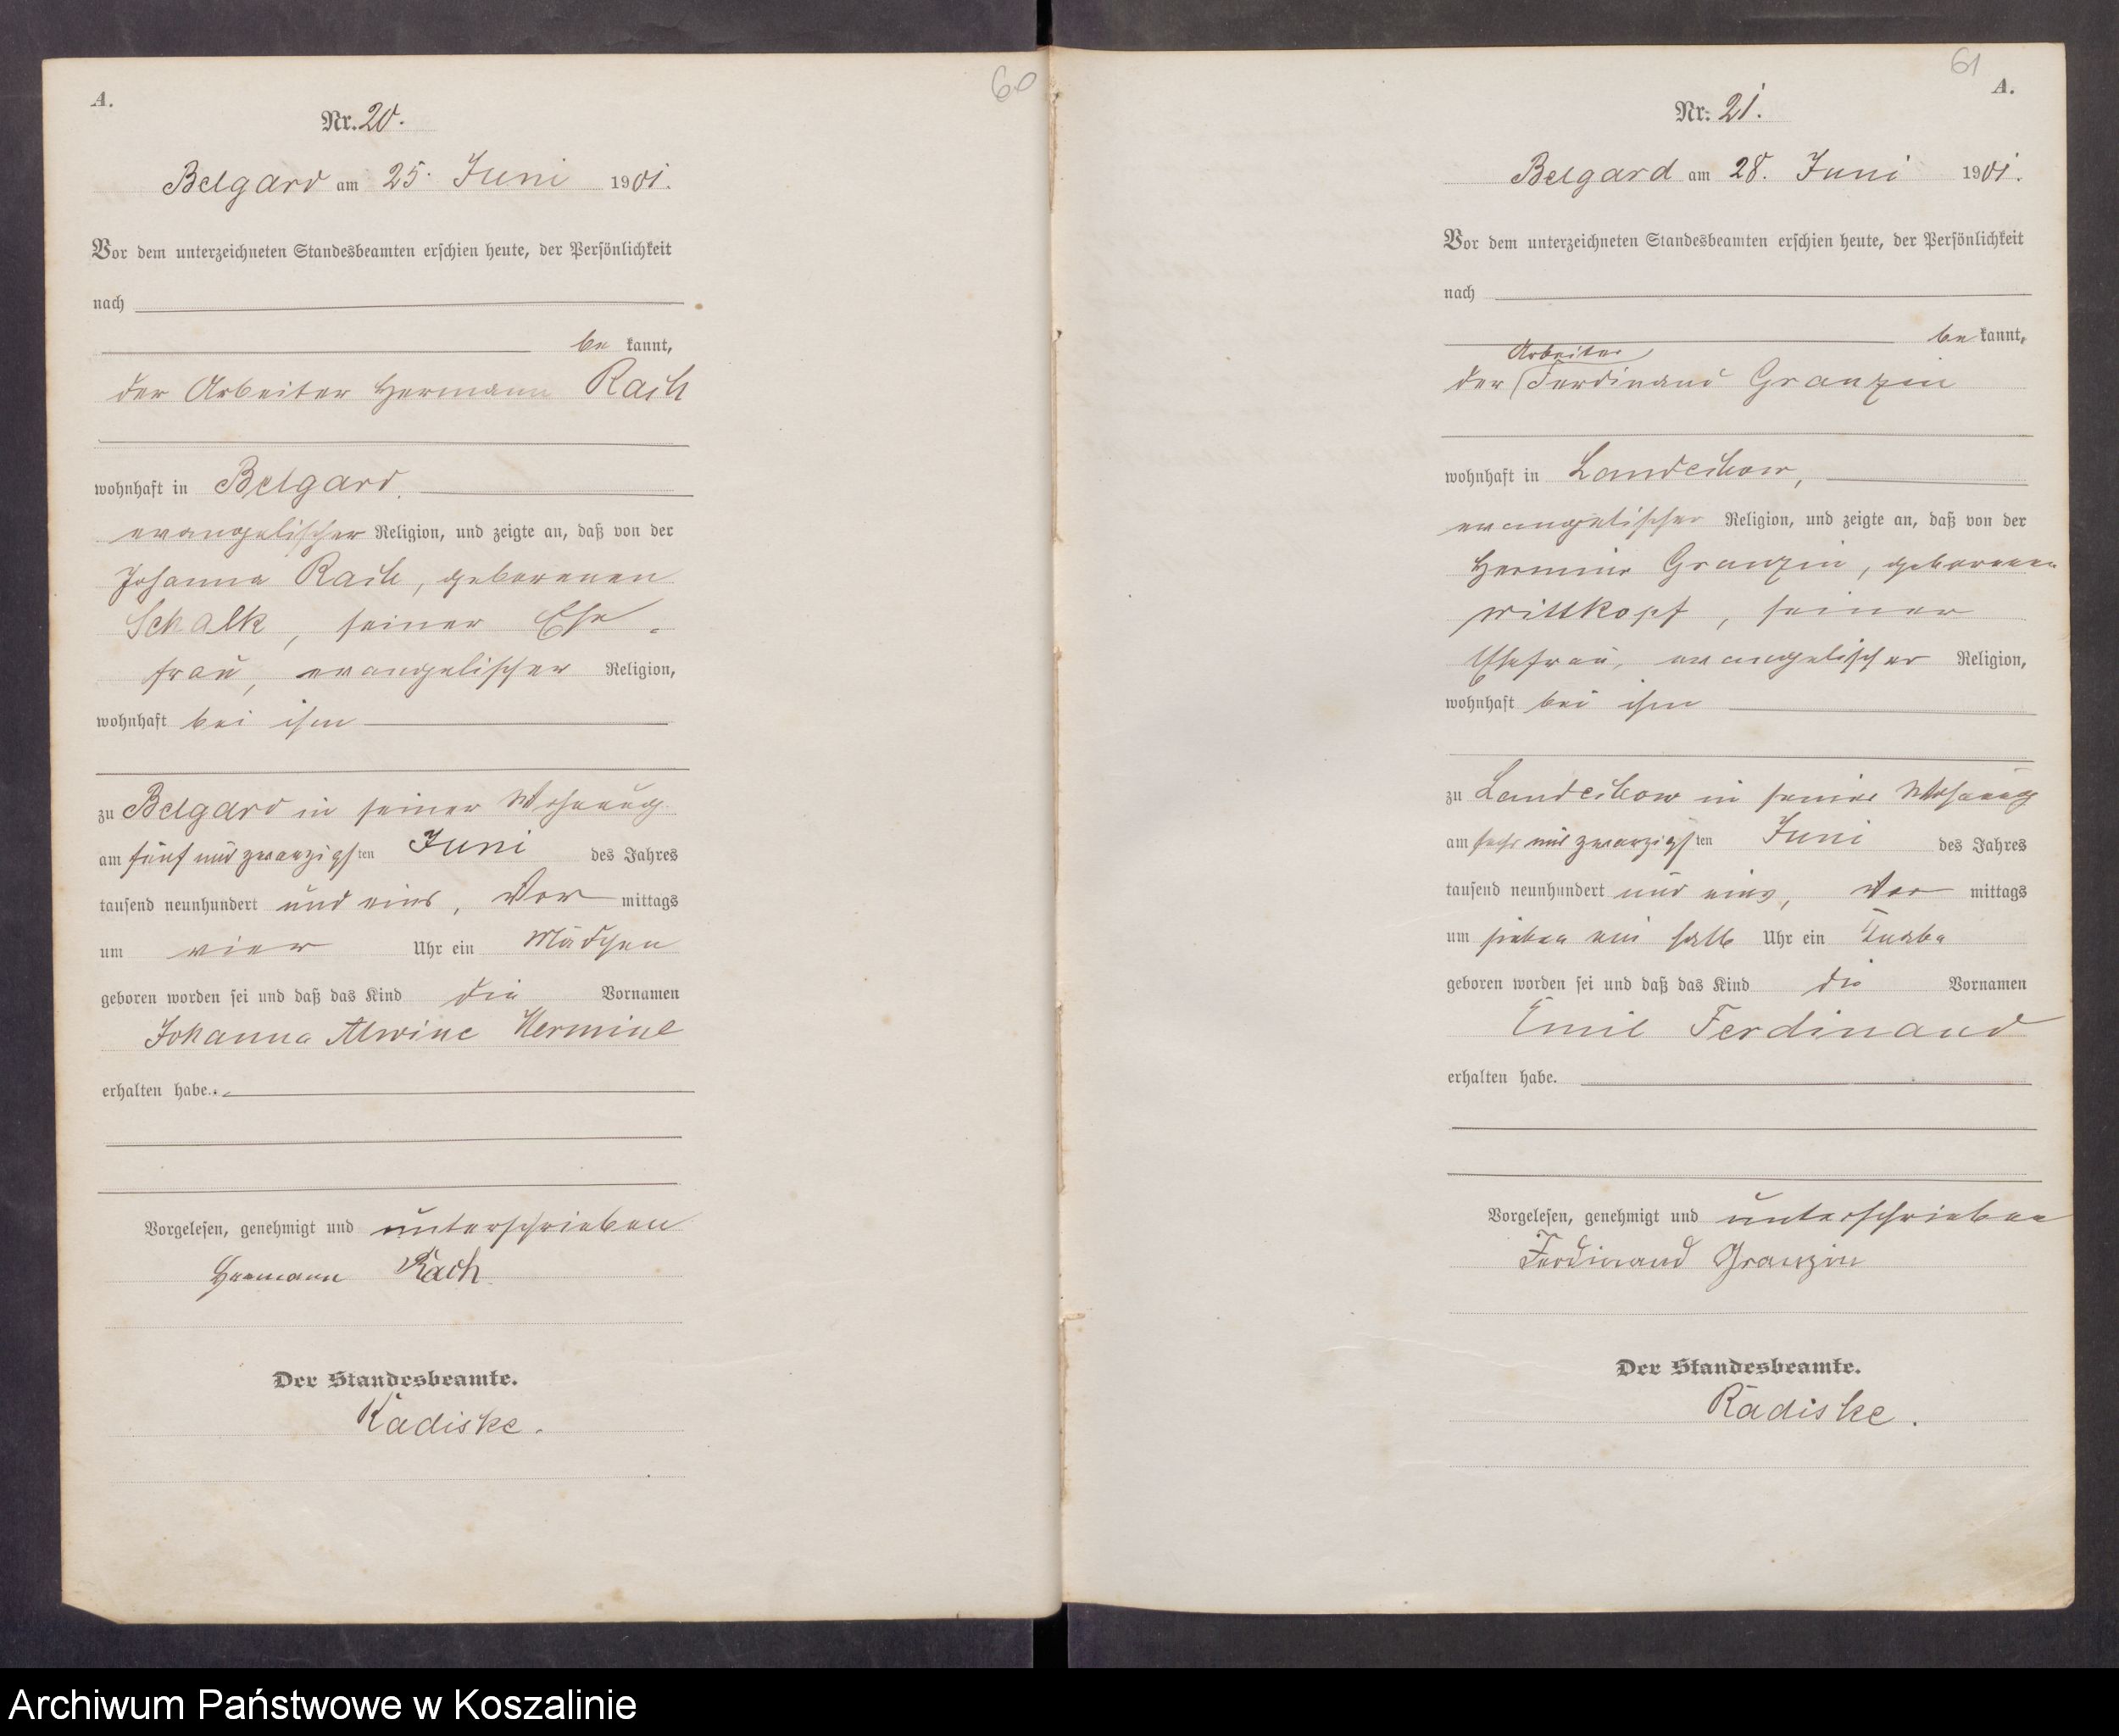 60
A.
Nr. 20.
Belgard am 25. Juni 1901.
Vor dem unterzeichneten Standesbeamten erschien heute, der Persönlichkeit
nach
be kannt,
der Arbeiter Hermann Rach
wohnhaft in Belgard,
evangelischer Religion, und zeigte an, daß von der
Johanna Rach, geborenen
Schalk, seiner Ehe-
frau, evangelischer Religion,
wohnhaft bei ihm
zu Belgard in seiner Wohnung
am fünf und zwanzigsten Juni des Jahres
tausend neunhundert und eins, Vor mittags
um vier Uhr ein Mädchen
geboren worden sei und daß das Kind die Vornamen
Johanna Alwine Hermine
erhalten habe.
Vorgelesen, genehmigt und unterschrieben
Hermann Rach
Der Standesbeamte.
Radiske.
61
A.
Nr. 21.
Belgard am 28. Juni 1901.
Vor dem unterzeichneten Standesbeamten erschien heute, der Persönlichkeit
nach
be kannt,
Arbeiter
der Ferdinand Granzin
wohnhaft in Landechow,
evangelischer Religion, und zeigte an, daß von der
Hermine Granzin, geborenen
Wittkopf, seiner
Ehefrau, evangelischer Religion,
wohnhaft bei ihm
zu Landechow in seiner Wohnung
am sechs und zwanzigsten Juni des Jahres
tausend neunhundert und eins, Vor mittags
um sieben ein halb Uhr ein Knabe
geboren worden sei und daß das Kind die Vornamen
Emil Ferdinand
erhalten habe.
Vorgelesen, genehmigt und unterschrieben
Ferdinand Granzin
Der Standesbeamte.
Radiske.
Archiwum Państwowe w Koszalinie